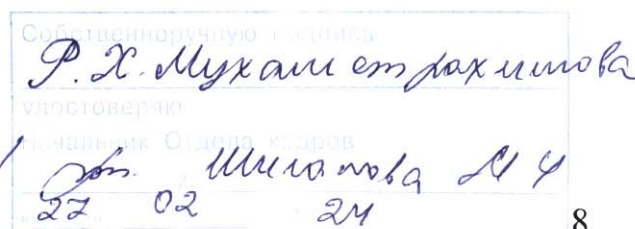 Собственноручную подпись
Р.Х. Мухаметрахимова
удостоверяю
Начальник Отдела кадров
Шигапова
27 02 24
8